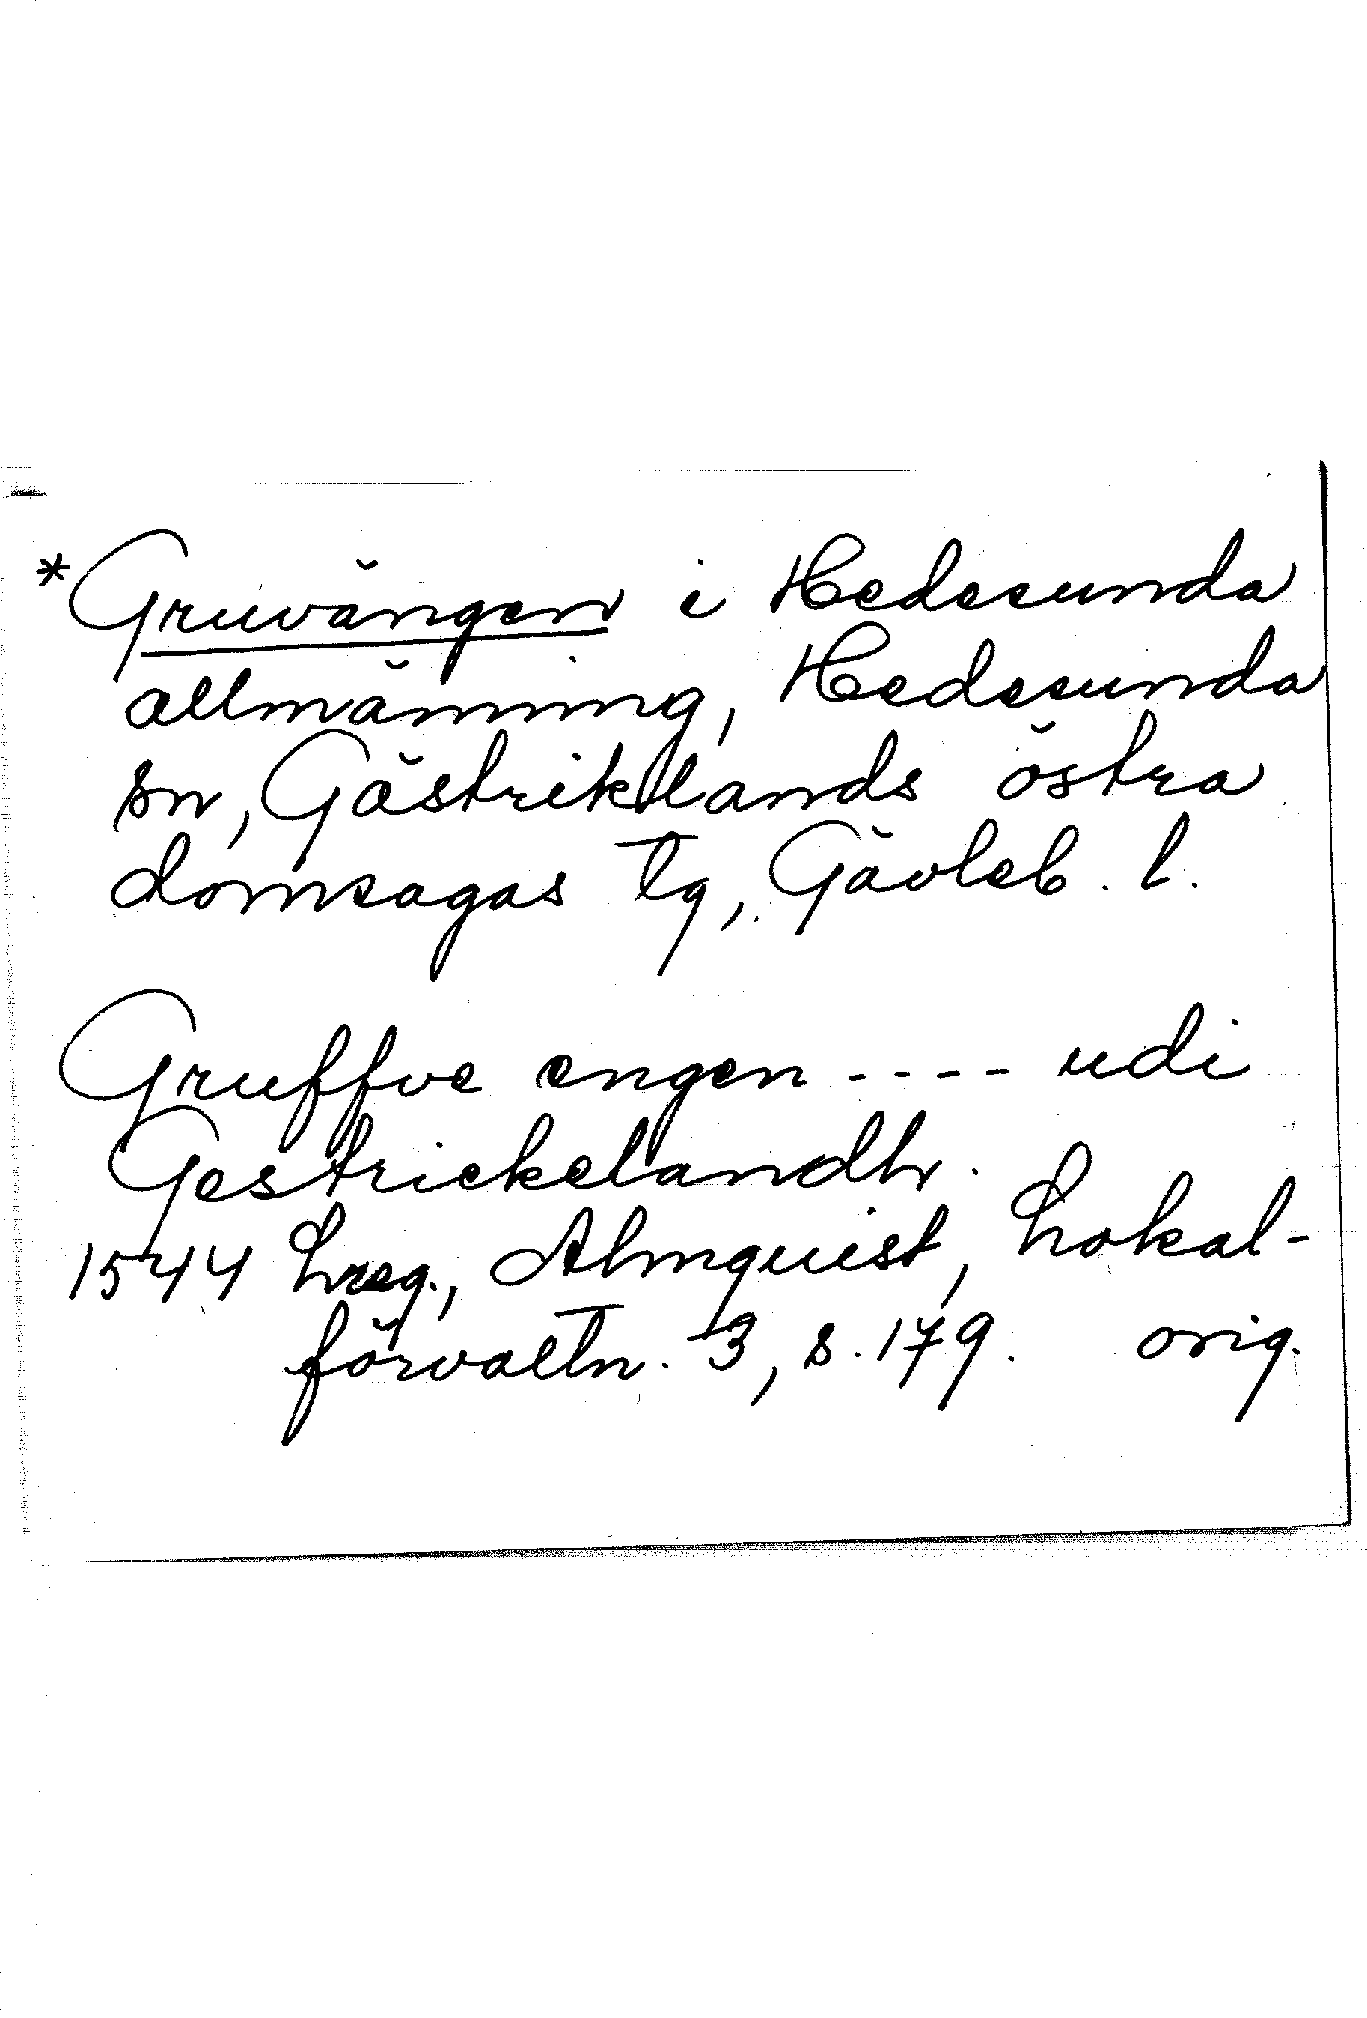 *Gruvängen i Hedesunda
allmänning, Hedesunda
sn, Gästriklands östra
domsagas tg, Gävleb. l.
Gruffve engen ---- udi
Gestrickelandh.
1544 Lreg., Almquist, Lokal-
förvaltn. 3, s. 179. orig.